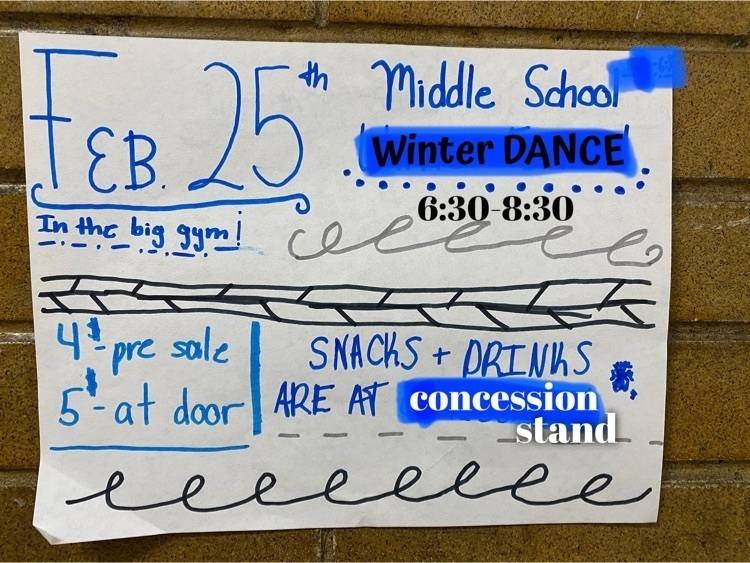 FEB. 25th
In the big gym!
Middle School
Winter DANCE
6:30-8:30
4$ - pre sale
5$ - at door
SNACKS + DRINKS
ARE AT concession
stand